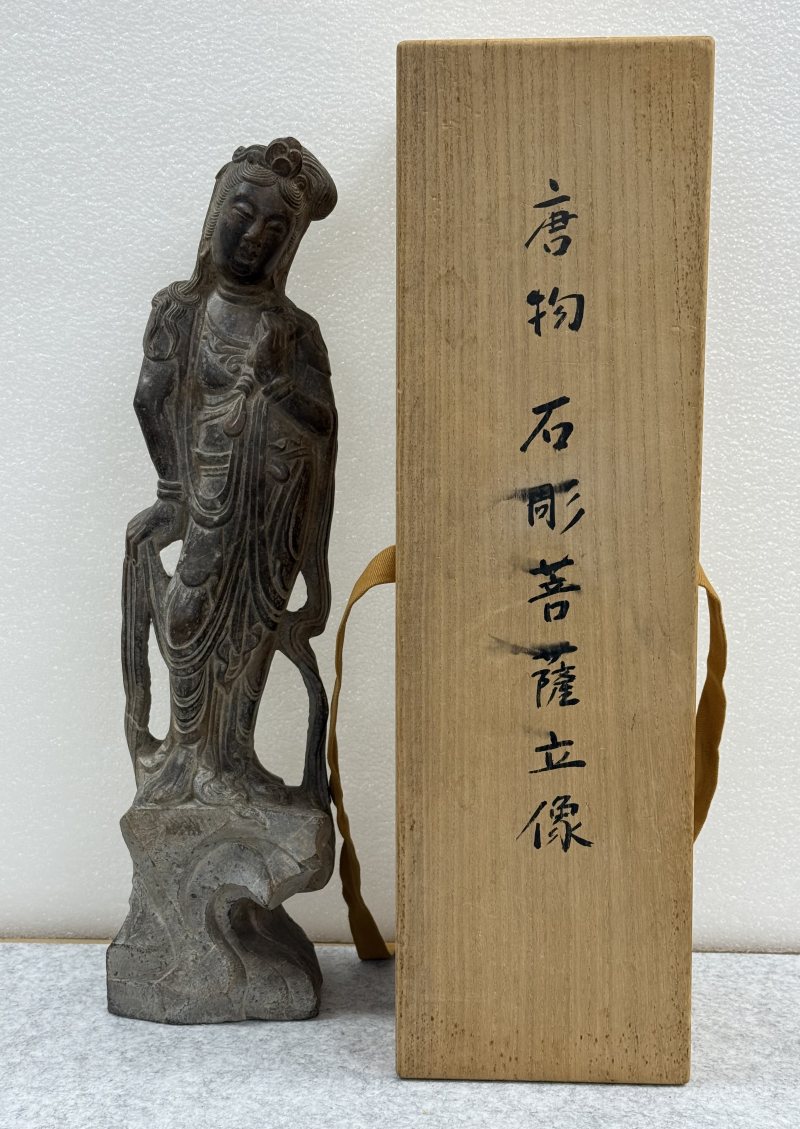 唐物 石彫菩薩立像